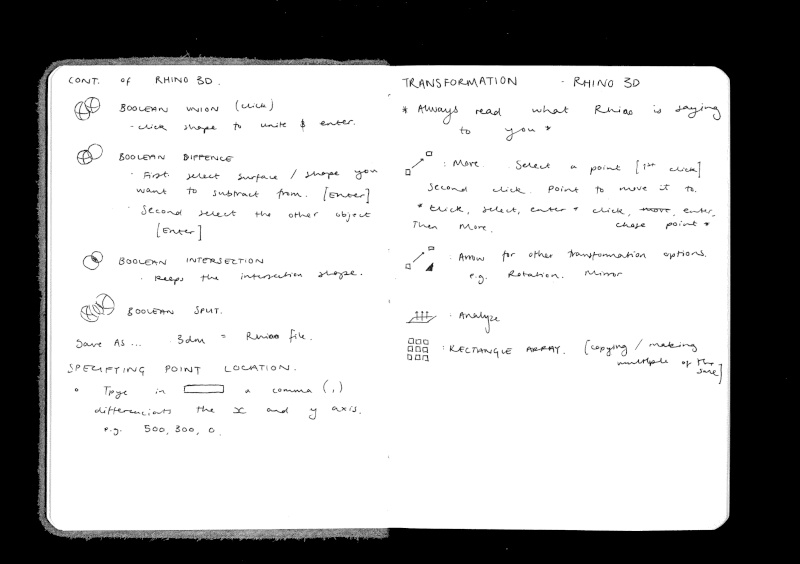 CONT. of RHINO 3D.
BOOLEAN UNION (click)
- click shape to unite & enter.
BOOLEAN DIFFENCE
· First select surface / shape you
want to subtract from. [Enter]
· Second select the other object
[Enter]
BOOLEAN INTERSECTION
· Keeps the intersection shape.
BOOLEAN SPLIT.
Save As... .3dm = Rhino file.
SPECIFYING POINT LOCATION.
• Tpye in a comma (,)
differenciats the x and y axis.
e.g. 500, 300, 0.
TRANSFORMATION - RHINO 3D
* Always read what Rhino is saying
to you *
: Move. Select a point [1st click]
Second click. Point to move it to.
* Click, select, enter * click, move, enter,
Then Move. chose point *
· Arrow for other transformation options.
e.g. Rotation. Mirror
· Analyze
: RECTANGLE ARRAY. [copying / making
multiple of the
same]